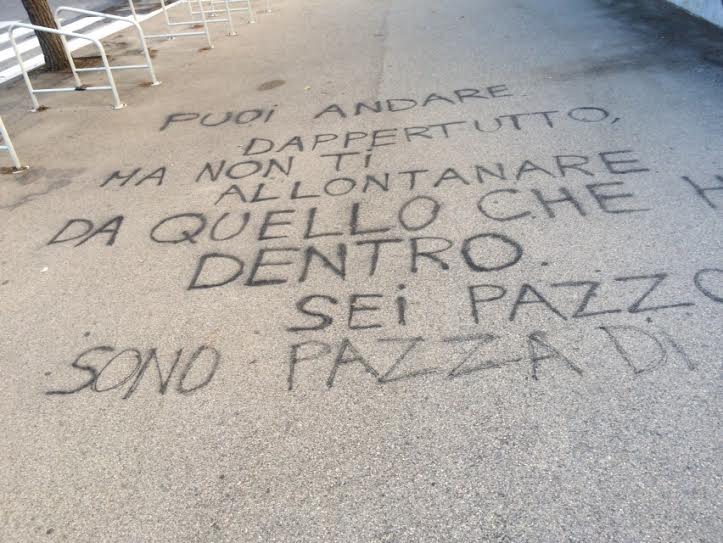 PUOI ANDARE
DAPPERTUTTO,
MA NON TI
ALLONTANARE
DA QUELLO CHE H
DENTRO.
SEI PAZZO
SONO PAZZA DI